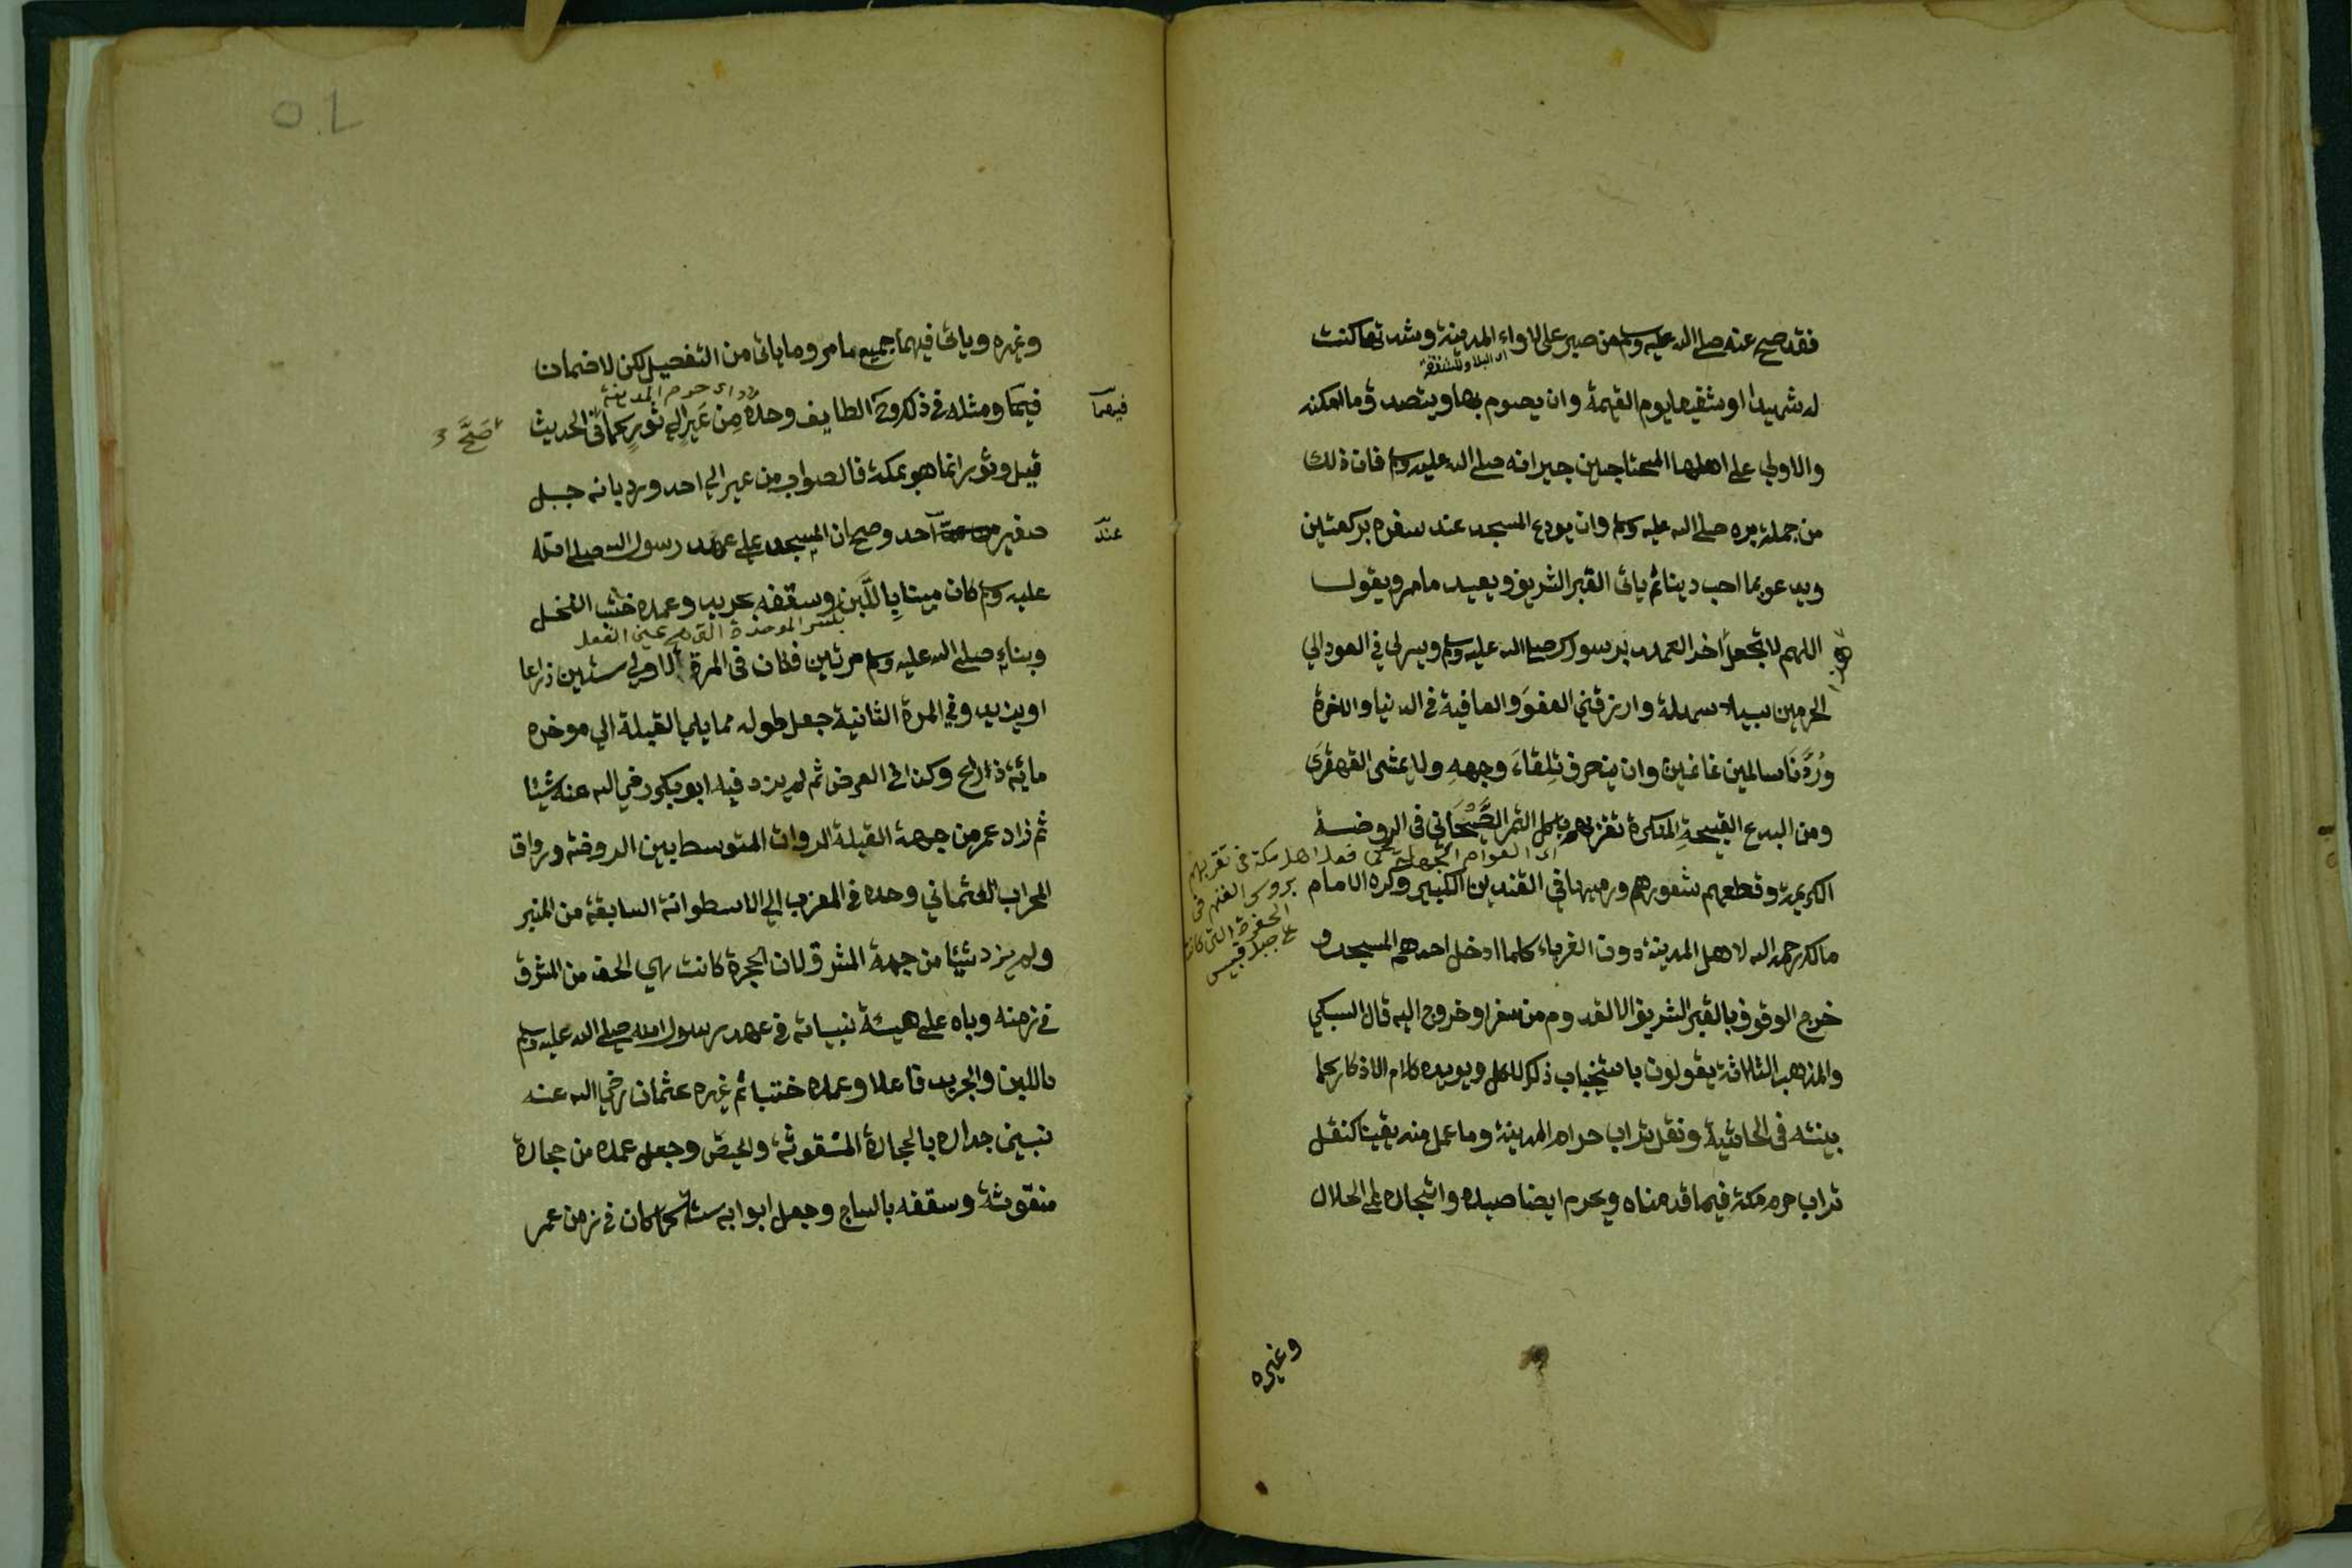 فقد صح عنه صلى الله عليه وسلم من صبر على لاواء المدينة وشدتها كنت
اى البلاء والمشقة
له شهيدا او شفيعا يوم القيمة وان يصوم بها ويتصدق وما امكنه
والاولي على اهلها المحتاجين جيرانه صلى الله عليه وسلم فان ذلك
من جملة بره صلى الله عليه وسلم وان يودع المسجد عند سفره بركعتين
ويدعو بما احب دينا ثم ياتى القبر الشريف ويعيد ما مر ويقول
اللهم لا تجعل اخر العهد برسولك صلى الله عليه وسلم ويسر لي في العود الي
هذا
الحرمين سبيلا سهلة وارزقني العفو والعافية في الدنيا والاخرة
ورُدَّنَا سالمين غانمين وان ينحرف تِلقاءَ وجهه ولا يمشي القهقرى
ومن البدع القبيحة المنكرة تقربهم باكل التمر الصَّيْحَاني في الروضة
اى العوام الجهلة كما فعل اهل مكة في تقربهم
بروس الغنم في
الحفرة التي كانت
على جبل قبيس
الكريمة وقطعهم شعورهم ورميها في القنديل الكبير وكره الامام
مالك رحمه الله لاهل المدينة دون الغرباء كلما ادخل احدهم المسجد و
خرج الوقوف بالقبر الشريف الا لقدوم من سفر او خروج اليه قال السبكي
والمذهب الثلاثة يقولون باستحباب ذلك للكل ويويده كلام الاذكار كما
بينته في الحاشية ونقل تراب حرم المدينة وما عمل منه يقينا كنقل
تراب حرم مكة فيما قدمناه ويحرم ايضا صيده واشجاره على الحلال
وغيره
وغيره وياتى فيهما جميع ما مر وما ياتى من التفصيل لكن لا ضمان
فيهما
اى حرم المدينة
فيهما ومثله في ذلك وجّ الطايف وحده مِن عَيرٍ الي ثورٍ كما في الحديث
صَحَّ
قيل وثور انما هو بمكة فالصواب من عير الي احد ورد بانه جبل
عند
صغير احد وصح ان المسجد على عهد رسول الله صلى الله
عليه وسلم كان مبنيا باللَّبِن وسقفه بجريد وعمده خشب النخل
بكسر الموحدة التي هي عين الفعل
وبناه صلى الله عليه وسلم مرتين فكان في المرة الاولي ستين ذراعا
او يزيد وفي المرة الثانية جعل طوله مما يلي القبلة الي موخره
ماية ذراع وكذا في العرض ثم لم يزد فيه ابو بكر رضي الله عنه شيئا
ثم زاد عمر من جهة القبلة الرواق المتوسط بين الروضة ورواق
المحراب العثماني وحده في المغرب الي الاسطوانة السابقة من المنبر
ولم يزد شيئا من جهة المشرق لان الحجرة كانت هي الحد من المشرق
في زمنه وبناه على هيئة بنيانه في عهد رسول الله صلى الله عليه وسلم
باللبن والجريد فاعلا وعمده خشبا ثم غيره عثمان رضي الله عنه
جداره بالحجارة المنقوشة والجص وجعل عمده من حجارة
منقوشة وسقفه بالساج وجعل ابوابه ستة كما كان في زمن عمر